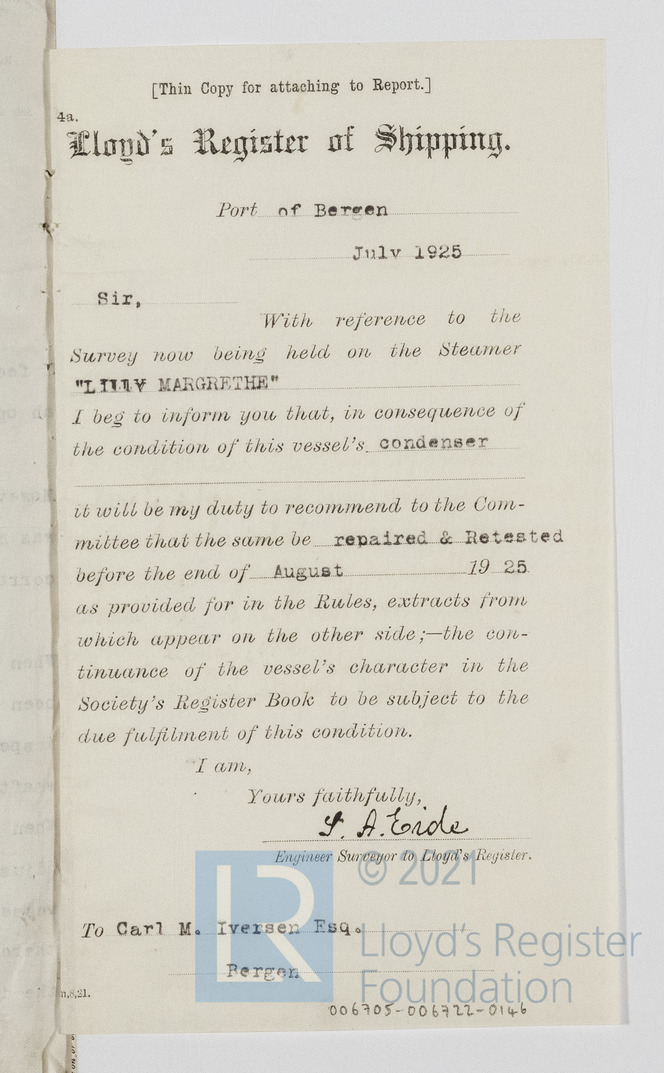 [Thin Copy for attaching to Report.]
4a.
Lloyd's Register of Shipping.
Port of Bergen
July 1925
Sir,
With reference to the
Survey now being held on the Steamer
"LILLY MARGRETHE"
I beg to inform you that, in consequence of
the condition of this vessel's condenser
it will be my duty to recommend to the Com-
mittee that the same be repaired & Retested
before the end of August 19 25
as provided for in the Rules, extracts from
which appear on the other side;—the con-
tinuance of the vessel's character in the
Society's Register Book to be subject to the
due fulfilment of this condition.
I am,
Yours faithfully,
S. A. Eide
Engineer Surveyor to Lloyd's Register.
© 2021
LR
Lloyd's Register
Foundation
To Carl M. Iversen Esq.
Bergen
n,8,21.
006705-006722-0146